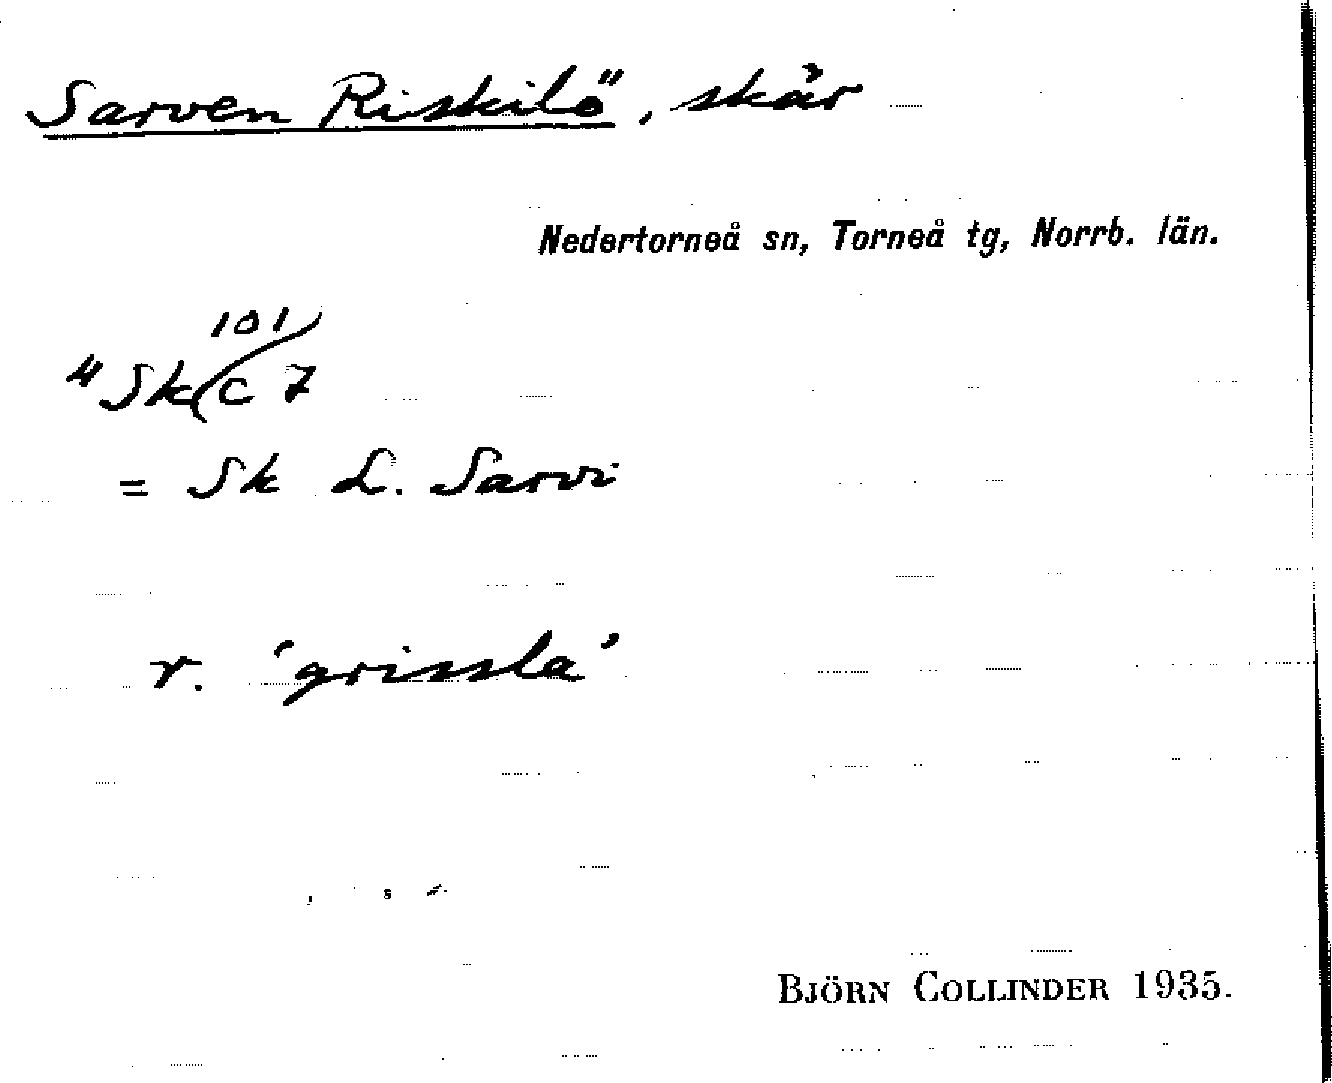 Sarven Riskilö, skär
Nedertorneå sn, Torneå tg, Norrb. län.
101
"Sk(c 7
= Sk L. Sarvi
r. 'grissla'
BJÖRN COLLINDER 1935.